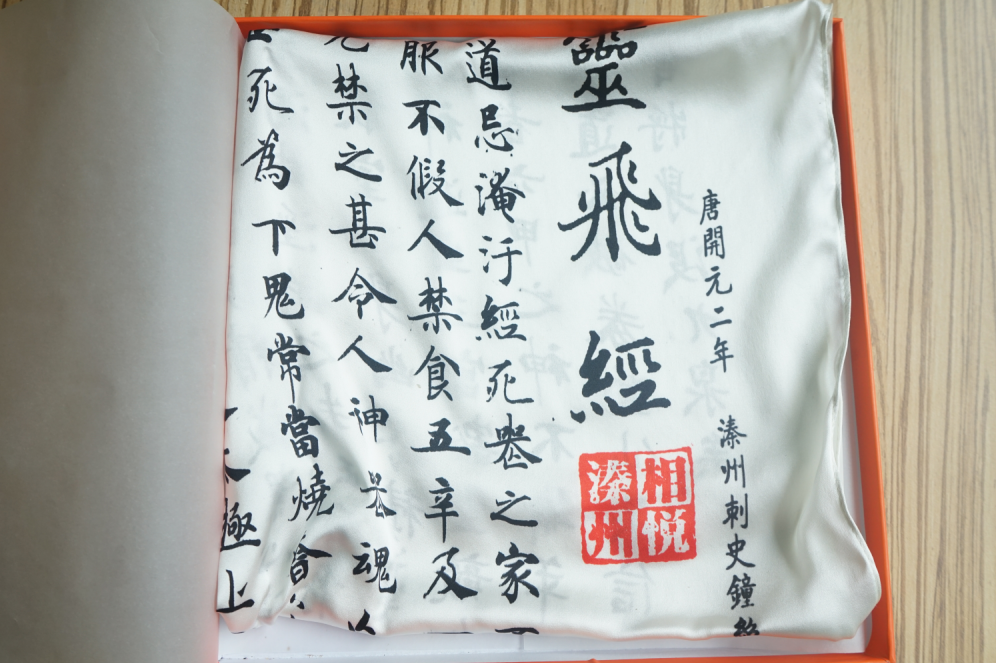 唐開元二年 溱州刺史鐘
靈飛經
相悦溱州
道忌淹汙經死喪之家
服不假人禁食五辛及
禁之甚令人神喪魂
死為下鬼常當燒香
太極上